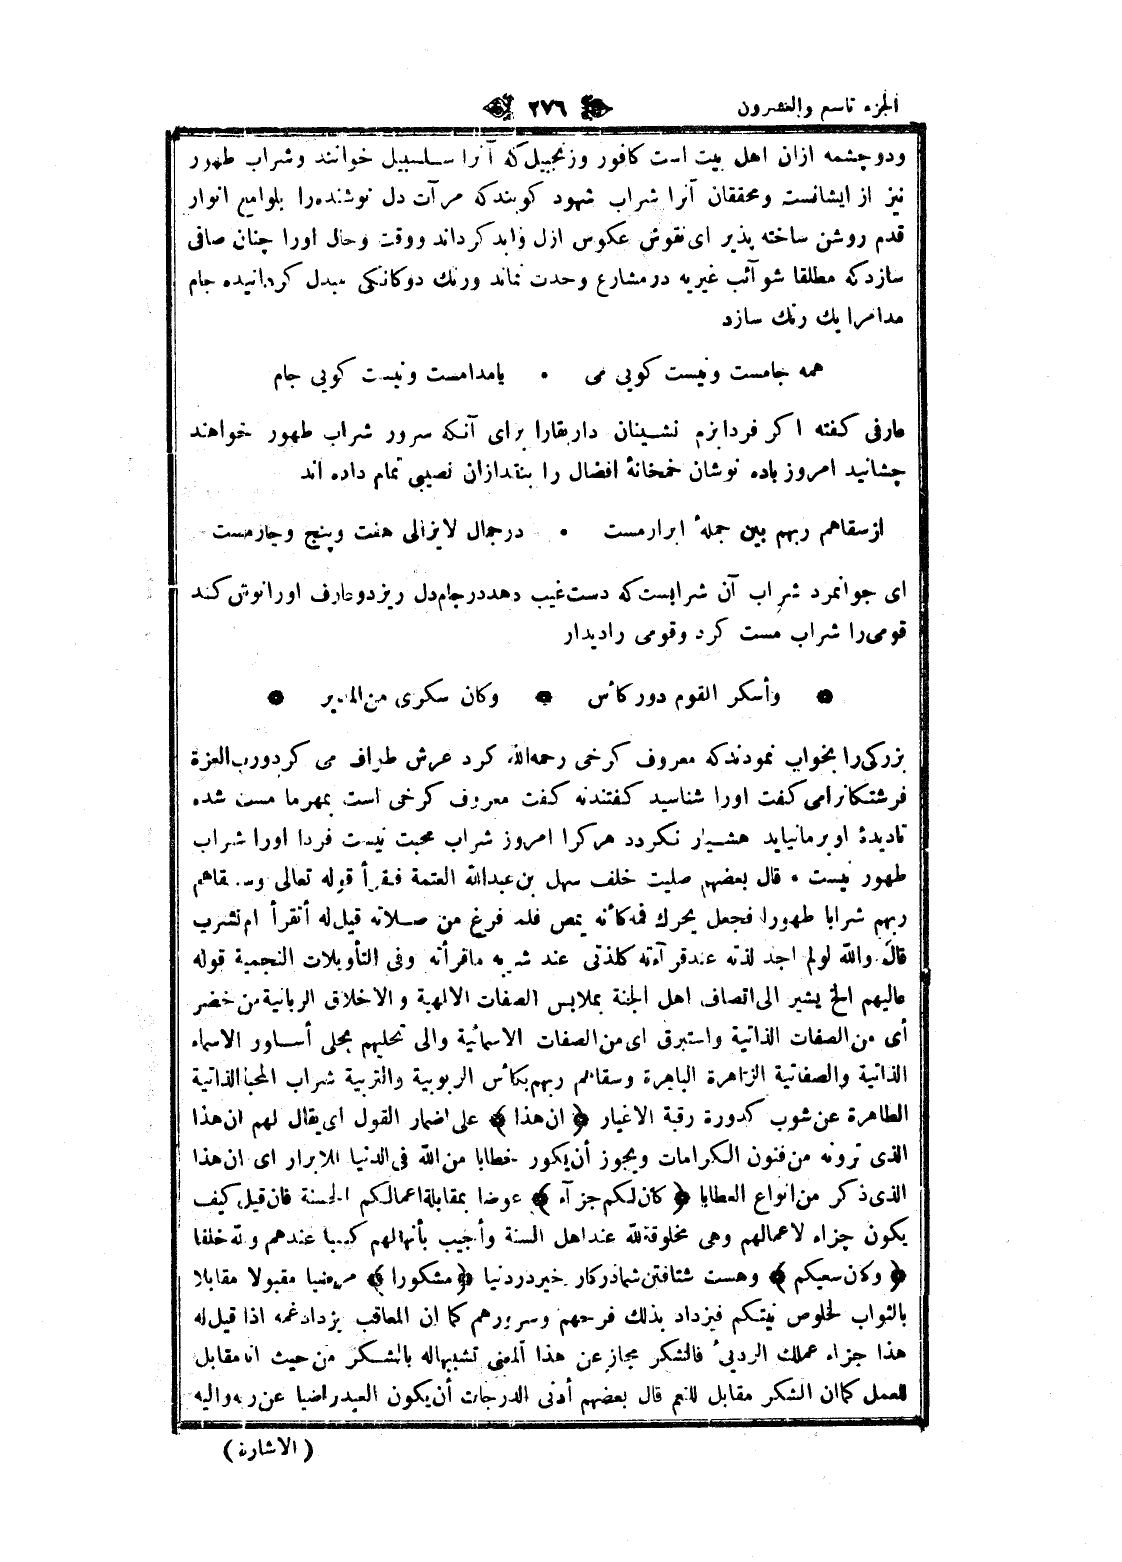 الجزء تاسع والعشرون ٢٧٦
ودو چشمه ازان اهل بيت است كافور وزنجبيل كه آنرا سلسبيل خوانند وشراب طهور
نيز از ايشانست ومحققان آنرا شراب شهود كويند كه مرآت دل نوشنده را بلوامع انوار
قدم روشن ساخته پذير اى نقوش عكوس ازل وابد كرداند ووقت وحال اورا چنان صافى
سازد كه مطلقا شوآئب غيريه در مشارع وحدت نماند ورنك دوكانكى مبدل كردانيده جام
مدامرا يك رنك سازد
همه جامست ونيست كويى مى • يا مدامست ونيست كويى جام
عارفى كفته اكر فردا بزم نشينان دار بقارا براى آنكه سرور شراب طهور خواهند
چشانيد امروز باده نوشان خمخانۀ افضال را بنقد ازان نصيبى تمام داده اند
از سقاهم ربهم بين جملۀ ابرار مست • در جمال لايزالى هفت وپنج وچار مست
اى جوانمرد شراب آن شرابست كه دست غيب دهد در جام دل ريزد وعارف اورا نوش كند
قومى را شراب مست كرد وقومى را ديدار
وأسكر القوم دور كأس • وكان سكرى من المدير
بزركى را بخواب نمودند كه معروف كرخى رحمه الله كرد عرش طواف مى كرد ورب العزة
فرشتكانرا مى كفت اورا شناسيد كفتند نه كفت معروف كرخى است بمهر ما مست شده
تا ديدۀ او بر ما نيايد هشيار نكردد هر كرا امروز شراب محبت نيست فردا اورا شراب
طهور نيست • قال بعضهم صليت خلف سهل بن عبد الله العتمة فقرأ قوله تعالى وسقاهم
ربهم شرابا طهورا فجعل يحرك فمه كأنه يمص فلما فرغ من صلاته قيل له أتقرأ ام تشرب
قال والله لولم اجد لذته عند قرآءته كلذتى عند شربه ماقرأته وفى التأويلات النجمية قوله
عاليهم الخ يشير الى اتصاف اهل الجنة بملابس الصفات الالهية والاخلاق الربانية من خضر
أى من الصفات الذاتية واستبرق اى من الصفات الاسمائية والى تحليهم بحلى أساور الاسماء
الذاتية والصفاتية الزاهرة الباهرة وسقاهم ربهم بكأس الربوبية والتربية شراب المحبة الذاتية
الطاهرة عن شوب كدورة رقبة الاغيار ﴿ ان هذا ﴾ على اضمار القول اى يقال لهم ان هذا
الذى ترونه من فنون الكرامات ويجوز أن يكون خطابا من الله فى الدنيا للابرار اى ان هذا
الذى ذكر من انواع العطايا ﴿ كان لكم جزآء ﴾ عوضا بمقابلة اعمالكم الحسنة فان قيل كيف
يكون جزاء لاعمالهم وهى مخلوقة لله عند اهل السنة وأجيب بأنها لهم كسبا عندهم ولله خلقا
﴿ وكان سعيكم ﴾ وهست شتافتن شما در كار خير در دنيا ﴿ مشكورا ﴾ مرضيا مقبولا مقابلا
بالثواب لخلوص نيتكم فيزداد بذلك فرحهم وسرورهم كما ان المعاقب يزداد غمه اذا قيل له
هذا جزاء عملك الردئ فالشكر مجاز عن هذا المعنى تشبيها له بالشكر من حيث انه مقابل
للعمل كما ان الشكر مقابل للنعم قال بعضهم أدنى الدرجات أن يكون العبد راضيا عن ربه واليه
( الاشارة )